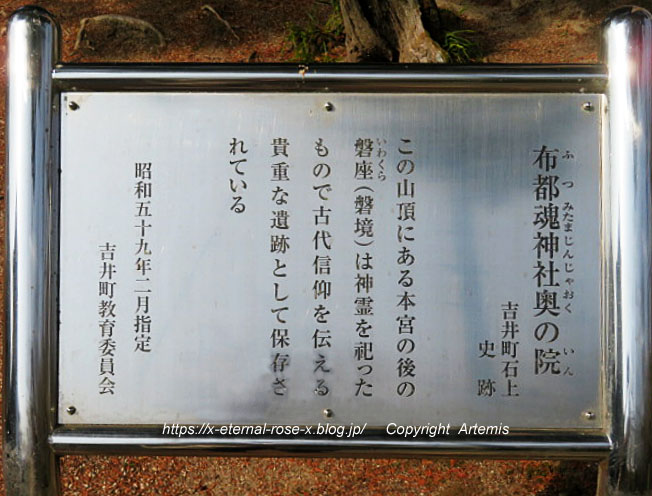 布都魂神社奥の院
ふつみたまじんじゃおくいん
吉井町石上
史跡
この山頂にある本宮の後の
磐座（磐境）は神霊を祀った
いわくら
もので古代信仰を伝える
貴重な遺跡として保存さ
れている
昭和五十九年二月指定
吉井町教育委員会
https://x-eternal-rose-x.blog.jp/ Copyright Artemis